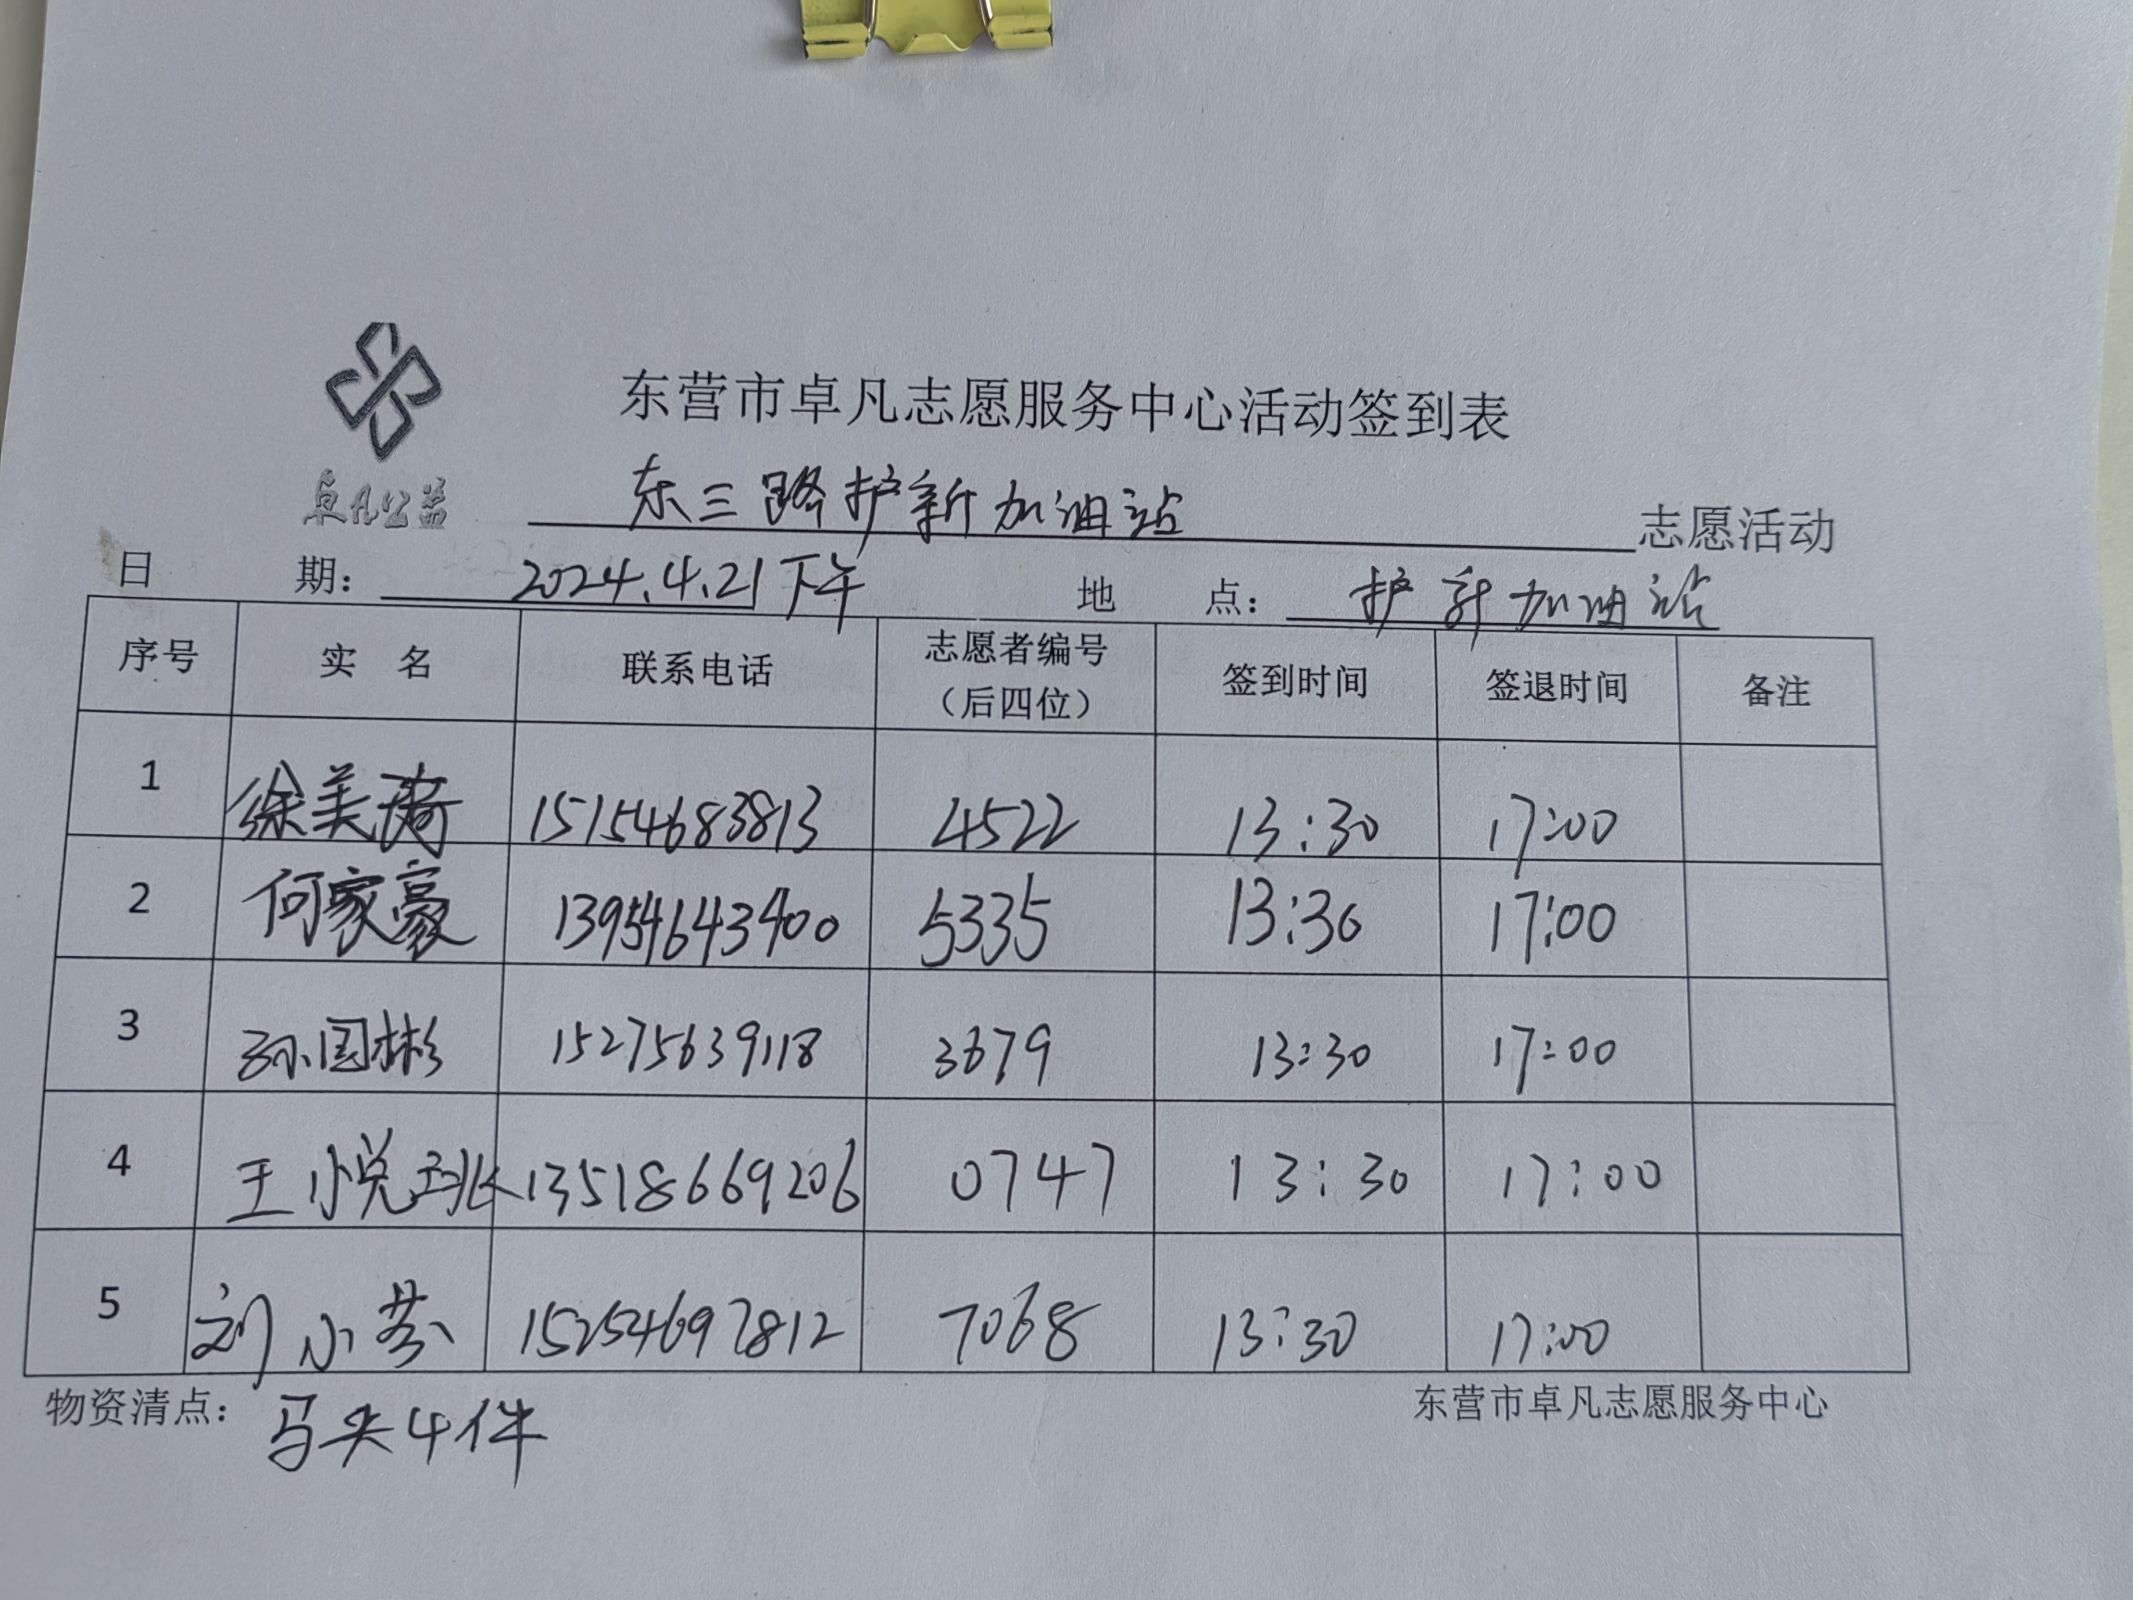 东营市卓凡志愿服务中心活动签到表
卓凡公益
东三路护新加油站 志愿活动
日 期： 2024.4.21下午 地 点： 护新加油站
序号 实 名 联系电话 志愿者编号（后四位） 签到时间 签退时间 备注
1 徐美琦 15154683813 4522 13:30 17:00
2 何家豪 13954643400 5335 13:30 17:00
3 孙国彬 15275639118 3679 13:30 17:00
4 王小悦 13518669206 0747 13:30 17:00
5 刘小芬 15254697812 7068 13:30 17:00
物资清点： 马夹4件 东营市卓凡志愿服务中心